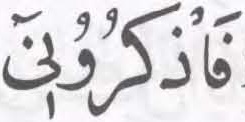 فَاذْكُرُوْنٖيٓ